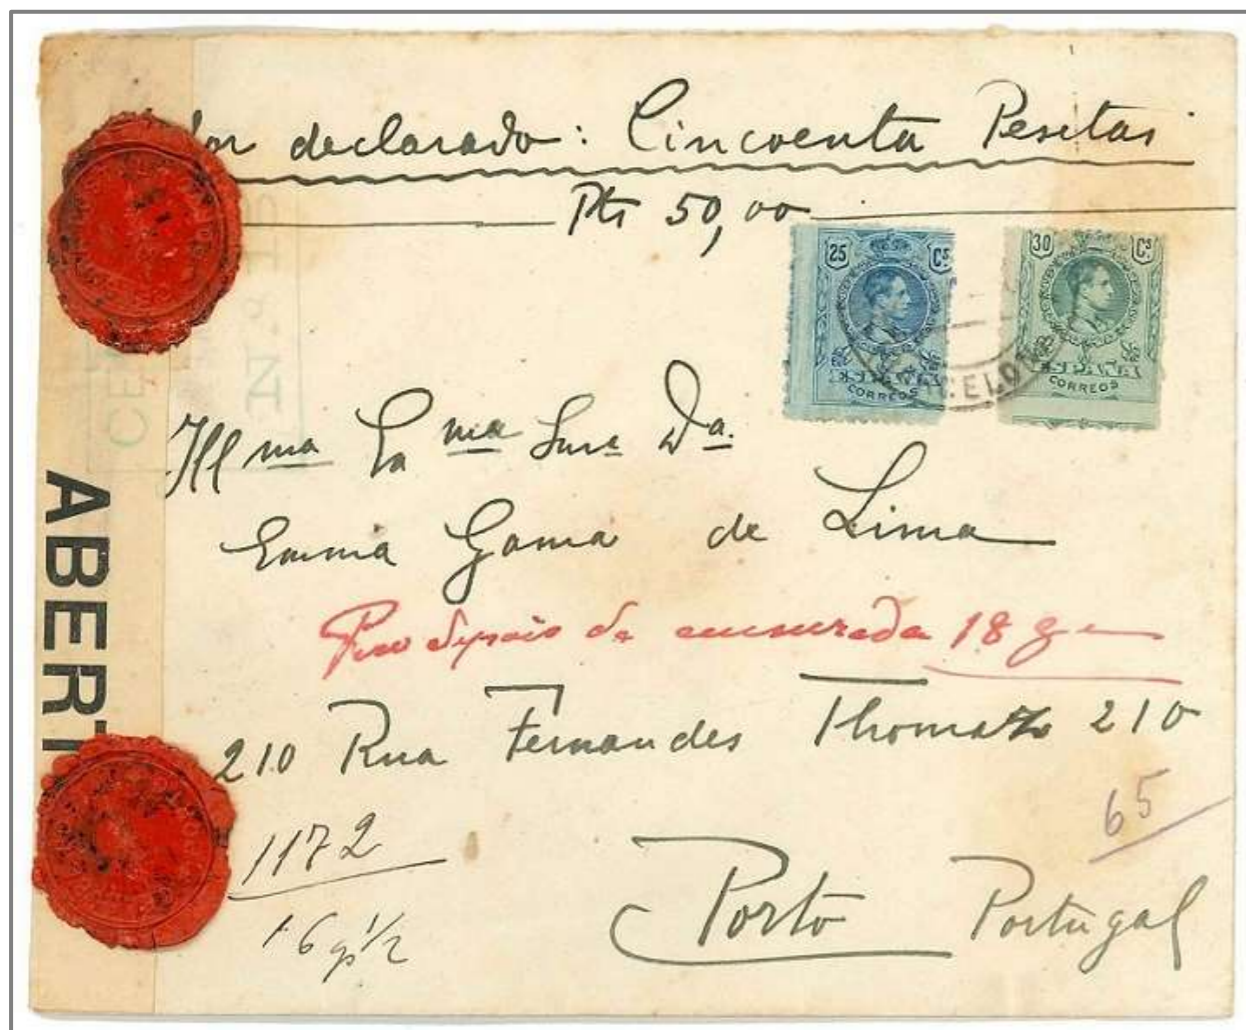 or declarado: Cincoenta Pesetas
Pts 50,00
25 Cs
30 Cs
ESPAÑA
CORREOS
ESPAÑA
CORREOS
CELO
CE
Nº
Illma Exma Snra Da.
Emma Gama de Lima
Peso depois de censurada 18 g
210 Rua Fernandes Thomaz 210
65
1172
16 gr 1/2
Porto Portugal
ABERT